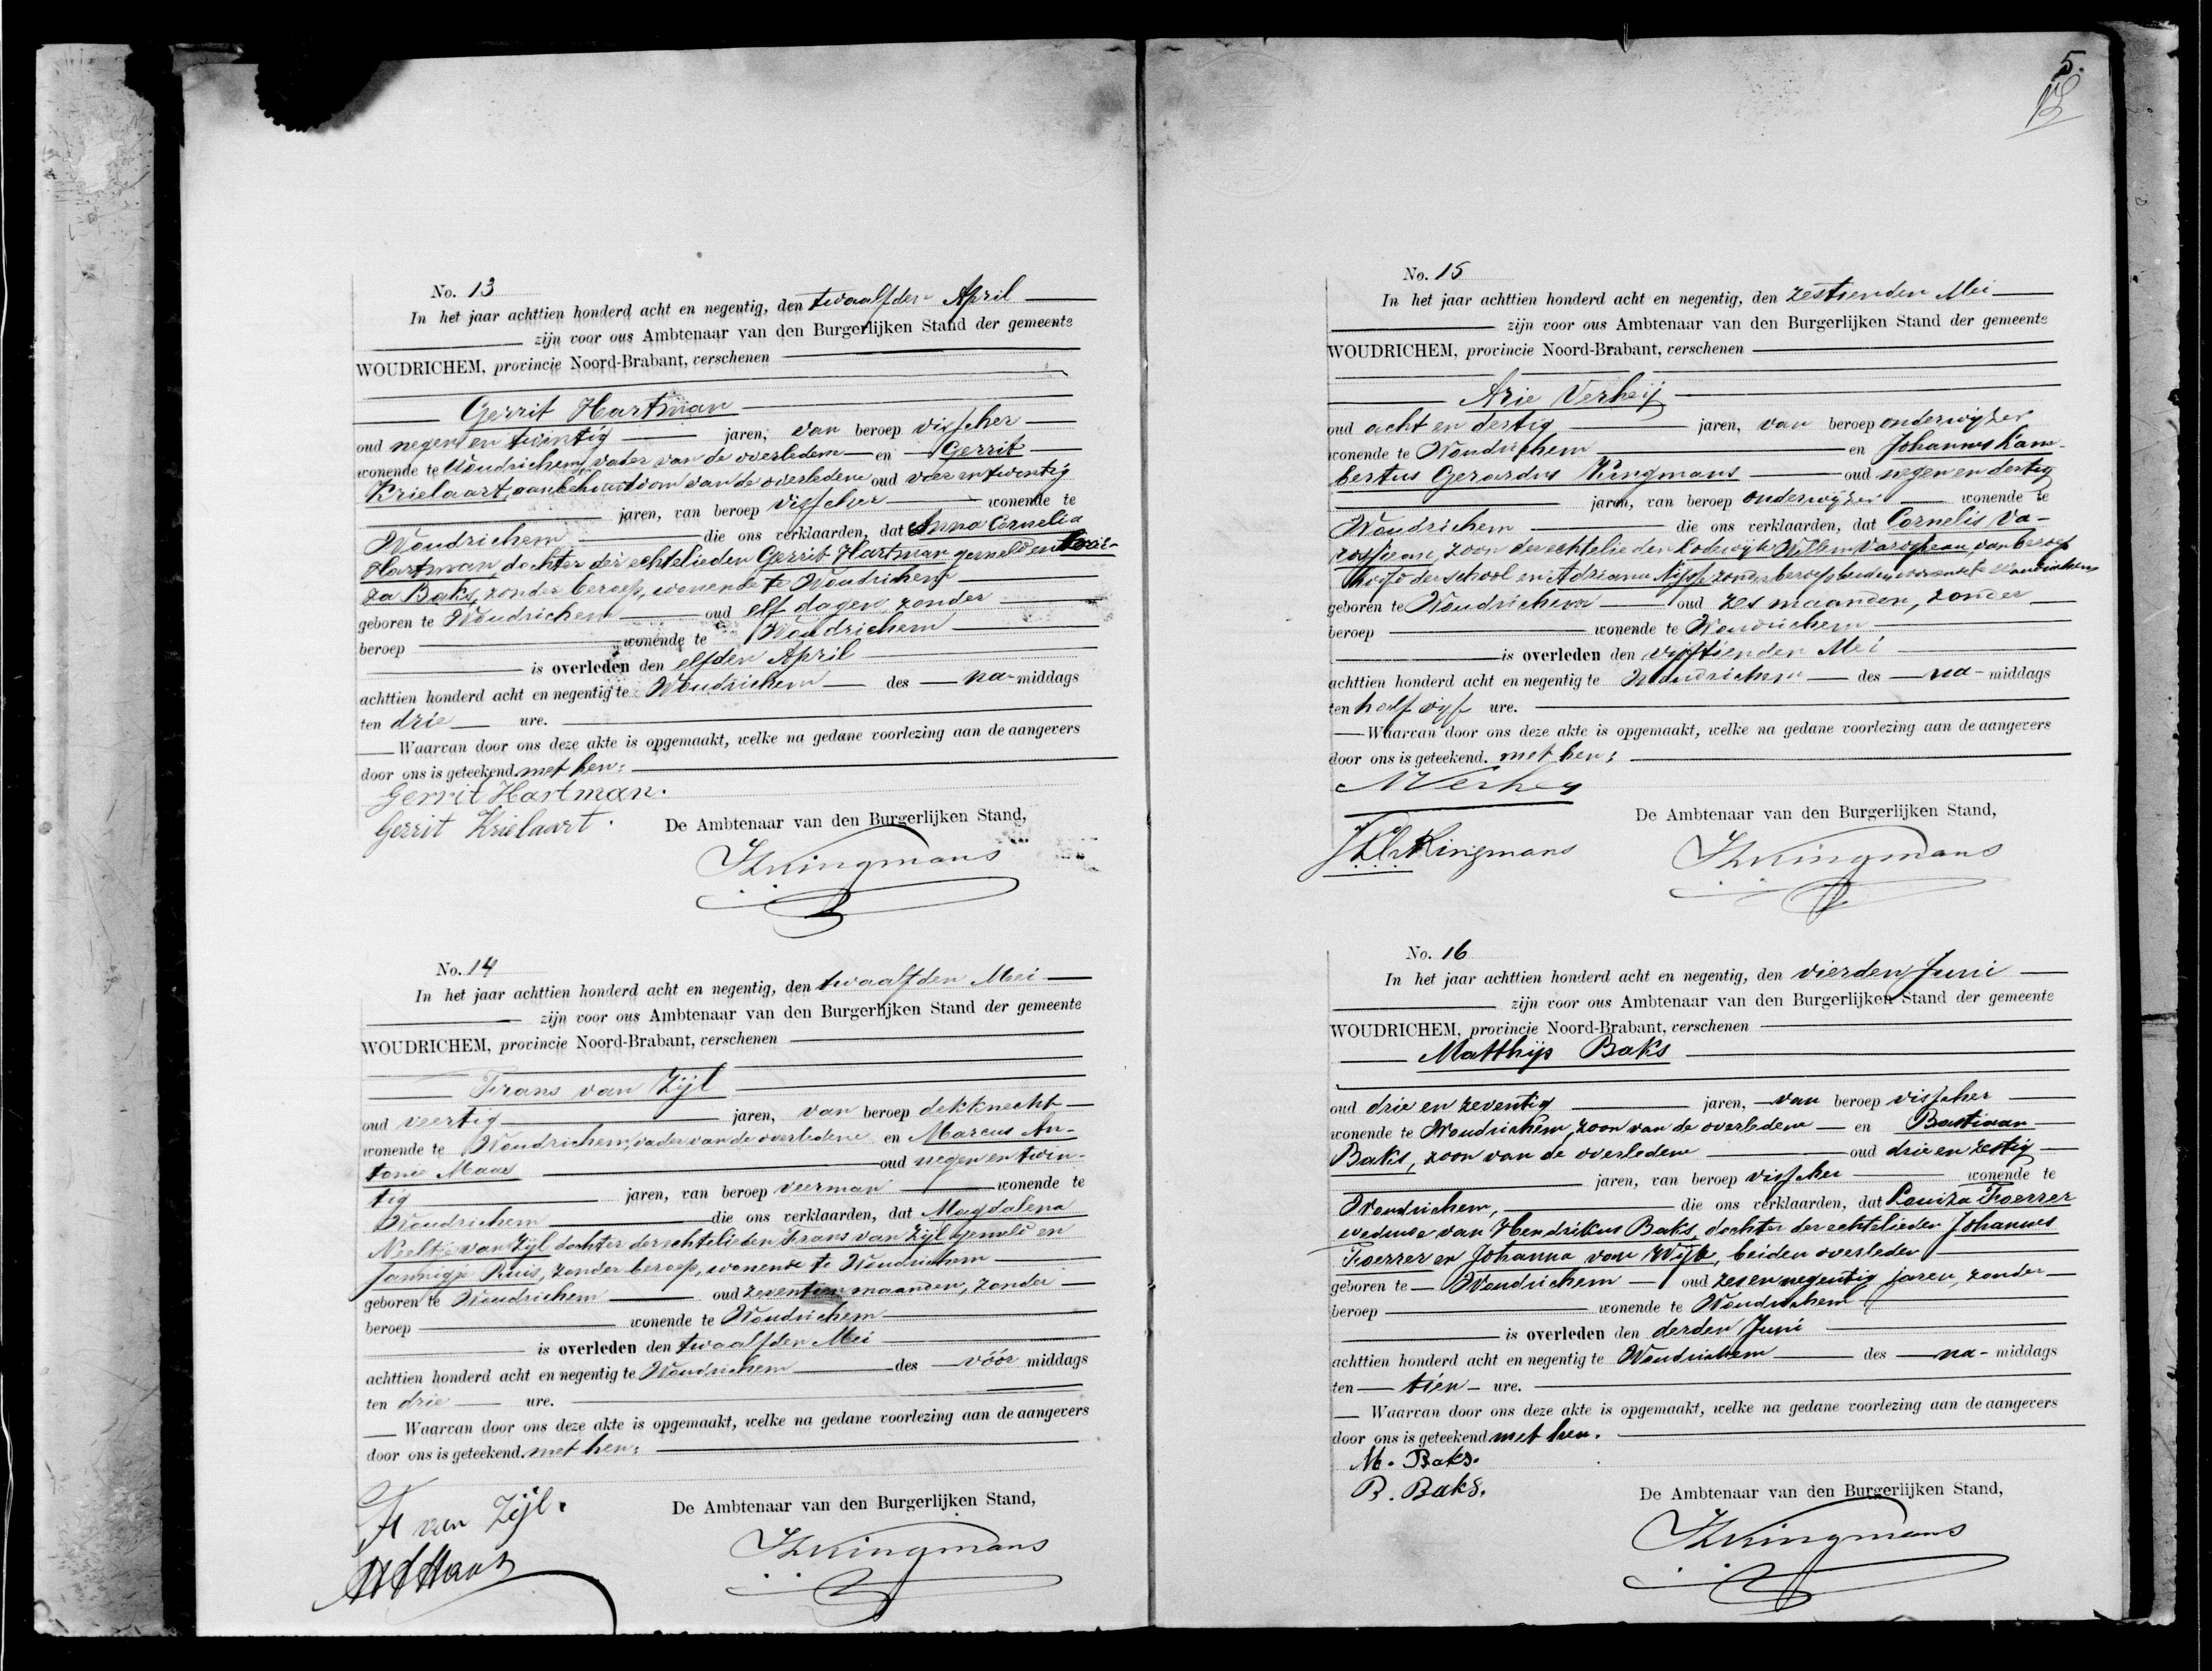 No. 13
In het jaar achttien honderd acht en negentig, den twaalfden April
zijn voor ons Ambtenaar van den Burgerlijken Stand der gemeente
WOUDRICHEM, provincie Noord-Brabant, verschenen
Gerrit Hartman
oud negen en twintig jaren, van beroep visscher
wonende te Woudrichem, vader van de overledene en Gerrit
Krielaart, aanbehuwdoom van de overledene oud vier en twintig
jaren, van beroep visscher wonende te
Woudrichem die ons verklaarden, dat Anna Cornelia
Hartman, dochter der echtelieden Gerrit Hartman gemeld en
za Baks, zonder beroep, wonende te Woudrichem
geboren te Woudrichem oud elf dagen, zonder
beroep wonende te Woudrichem
is overleden den elfden April
achttien honderd acht en negentig te Woudrichem des na-middags
ten drie ure.
Waarvan door ons deze akte is opgemaakt, welke na gedane voorlezing aan de aangevers
door ons is geteekend. met hen:
Gerrit Hartman.
Gerrit Krielaart.
De Ambtenaar van den Burgerlijken Stand,
Kingmans
No. 14
In het jaar achttien honderd acht en negentig, den twaalfden Mei
zijn voor ons Ambtenaar van den Burgerlijken Stand der gemeente
WOUDRICHEM, provincie Noord-Brabant, verschenen
Frans van Zijl
oud veertig jaren, van beroep dekknecht
wonende te Woudrichem, vader van de overledene en Marcus An-
tonie Maas oud negen en twin-
tig jaren, van beroep veerman wonende te
Woudrichem die ons verklaarden, dat Magdalena
Neeltje van Zijl dochter der echtelieden Frans van Zijl gemeld en
Jannigje Puis, zonder beroep, wonende te Woudrichem
geboren te Woudrichem oud zeventien maanden, zonder
beroep wonende te Woudrichem
is overleden den twaalfden Mei
achttien honderd acht en negentig te Woudrichem des vóór middags
ten drie ure.
Waarvan door ons deze akte is opgemaakt, welke na gedane voorlezing aan de aangevers
door ons is geteekend. met hen:
F van Zijl.
De Ambtenaar van den Burgerlijken Stand,
Kingmans
5.
No. 15
In het jaar achttien honderd acht en negentig, den zestienden Mei
zijn voor ons Ambtenaar van den Burgerlijken Stand der gemeente
WOUDRICHEM, provincie Noord-Brabant, verschenen
Arie Verheij
oud acht en dertig jaren, van beroep onderwijzer
wonende te Woudrichem en Johannes Lam-
bertus Gerardus Kingmans oud negen en dertig
jaren, van beroep onderwijzer wonende te
Woudrichem die ons verklaarden, dat Cornelis Va-
rossieau, zoon der echtelieden Lodewijk Willem Varossieau, van beroep
hoofd der school en Adriana zonder beroep beiden wonende te Woudrichem
geboren te Woudrichem oud zes maanden, zonder
beroep wonende te Woudrichem
is overleden den vijftienden Mei
achttien honderd acht en negentig te Woudrichem des na-middags
ten half vijf ure.
Waarvan door ons deze akte is opgemaakt, welke na gedane voorlezing aan de aangevers
door ons is geteekend. met hen:
Verhey
Kingmans
De Ambtenaar van den Burgerlijken Stand,
Kingmans
No. 16
In het jaar achttien honderd acht en negentig, den vierden Juni
zijn voor ons Ambtenaar van den Burgerlijken Stand der gemeente
WOUDRICHEM, provincie Noord-Brabant, verschenen
Matthijs Baks
oud drie en zeventig jaren, van beroep visscher
wonende te Woudrichem, zoon van de overledene en Bastiaan
Baks, zoon van de overledene oud drie en zestig
jaren, van beroep visscher wonende te
Woudrichem, die ons verklaarden, dat Louiza Foerrer
weduwe van Hendrikus Baks, dochter der echtelieden Johannes
Foerrer en Johanna van Wijk, beiden overleden
geboren te Woudrichem oud zes en negentig jaren, zonder
beroep wonende te Woudrichem
is overleden den derden Juni
achttien honderd acht en negentig te Woudrichem des na-middags
ten tien ure.
Waarvan door ons deze akte is opgemaakt, welke na gedane voorlezing aan de aangevers
door ons is geteekend met hen.
M. Baks.
B. Baks.
De Ambtenaar van den Burgerlijken Stand,
Kingmans